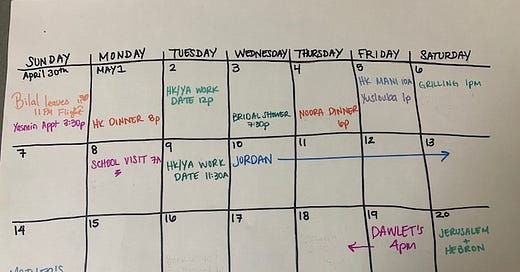 SUNDAY MONDAY TUESDAY WEDNESDAY THURSDAY FRIDAY SATURDAY
April 30th
Bilal leaves
11 PM Flight
Yasmin Appt 3:30p
MAY 1
HK DINNER 8p
2
HK/YA WORK
DATE 12p
3
BRIDAL SHOWER
7:30p
4
NOORA DINNER
6p
5
HK MANI 10A
Yuslouba 1p
6
GRILLING 1PM
7
8
SCHOOL VISIT 7A
9
HK/YA WORK
DATE 11:30A
10
JORDAN
11
12
13
14
15
16
17
18
19
DAWLET'S
4pm
20
JERUSALEM
+
HEBRON